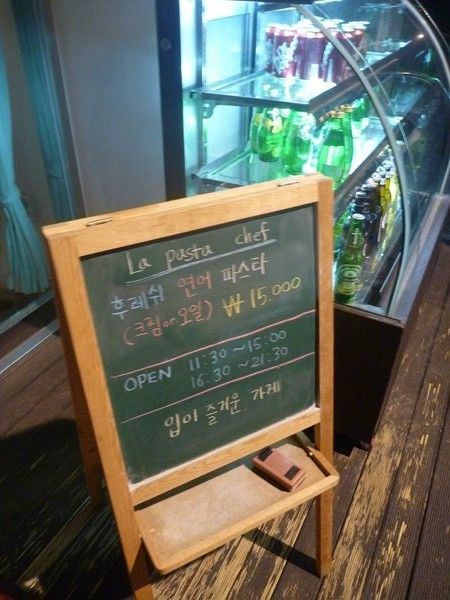 La pasta chef
후레쉬 연어 파스타
(크림or오일) ₩ 15.000
OPEN 11:30 ~ 15:00
16:30 ~ 21:30
입이 즐거운 가게